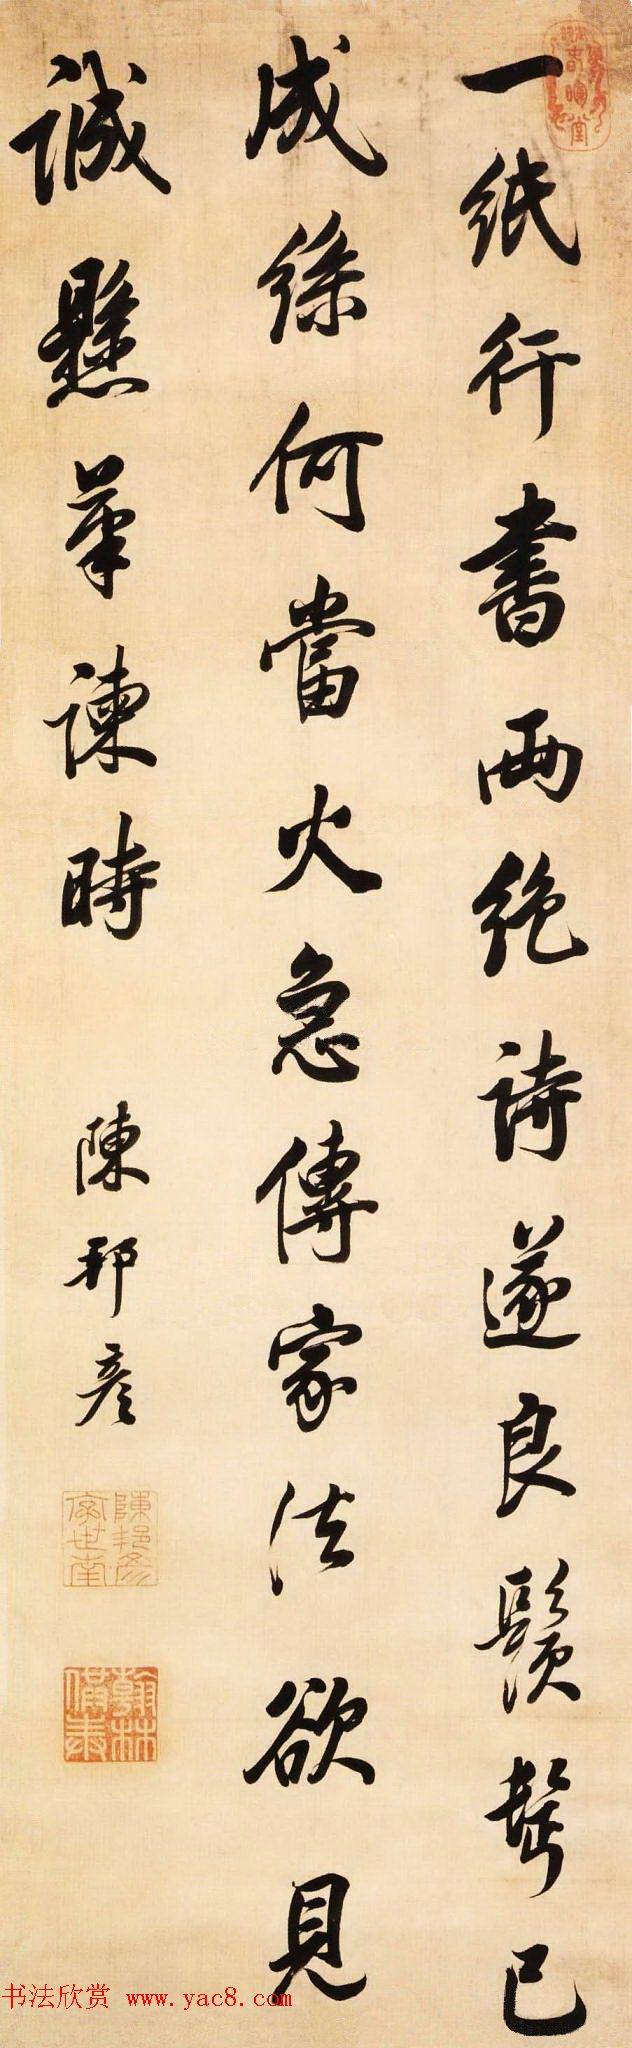 一紙行書兩絕詩遂良鬚鬢已
成絲何當火急傳家法欲見
誠懸筆諫時
陳邦彥
陳邦彥
翰林
书法欣赏 www.yac8.com